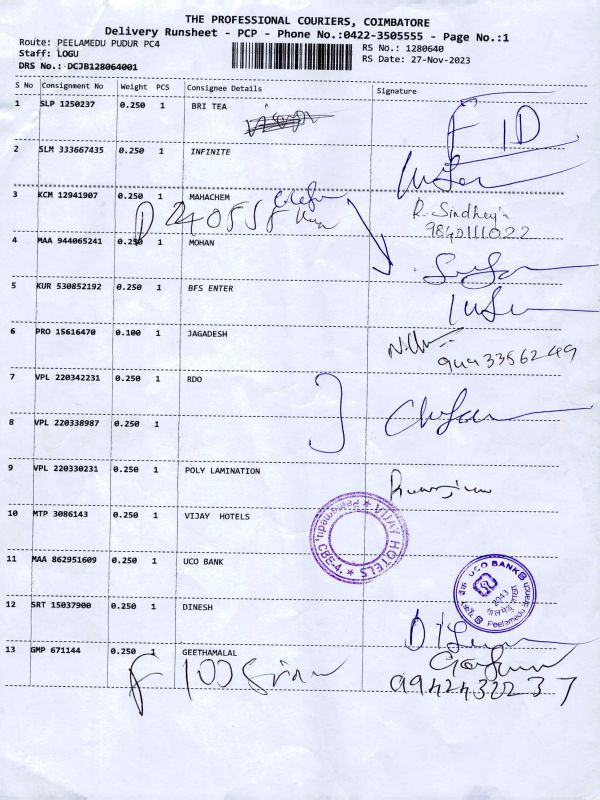 THE PROFESSIONAL COURIERS, COIMBATORE
Delivery Runsheet - PCP - Phone No.:0422-3505555 - Page No.:1
Route: PEELAMEDU PUDUR PC4
RS No.: 1280640
Staff: LOGU
RS Date: 27-Nov-2023
DRS No.: DCJB128064001
S No Consignment No Weight PCS Consignee Details Signature
1 SLP 1250237 0.250 1 BRI TEA
F ID
2 SLM 333667435 0.250 1 INFINITE
3 KCM 12941907 0.250 1 MAHACHEM
R. Sindhey
9840111022
4 MAA 944065241 0.250 1 MOHAN
5 KUR 530852192 0.250 1 BFS ENTER
6 PRO 15616470 0.100 1 JAGADESH
9443356249
7 VPL 220342231 0.250 1 RDO
8 VPL 220338987 0.250 1
9 VPL 220330231 0.250 1 POLY LAMINATION
10 MTP 3086143 0.250 1 VIJAY HOTELS
★ VIJAY HOTELS ★ Peelamedu, CBE-4.
11 MAA 862951609 0.250 1 UCO BANK
UCO BANK
2043
Peelamedu Branch
12 SRT 15037900 0.250 1 DINESH
13 GMP 671144 0.250 1 GEETHAMALAL
F 100